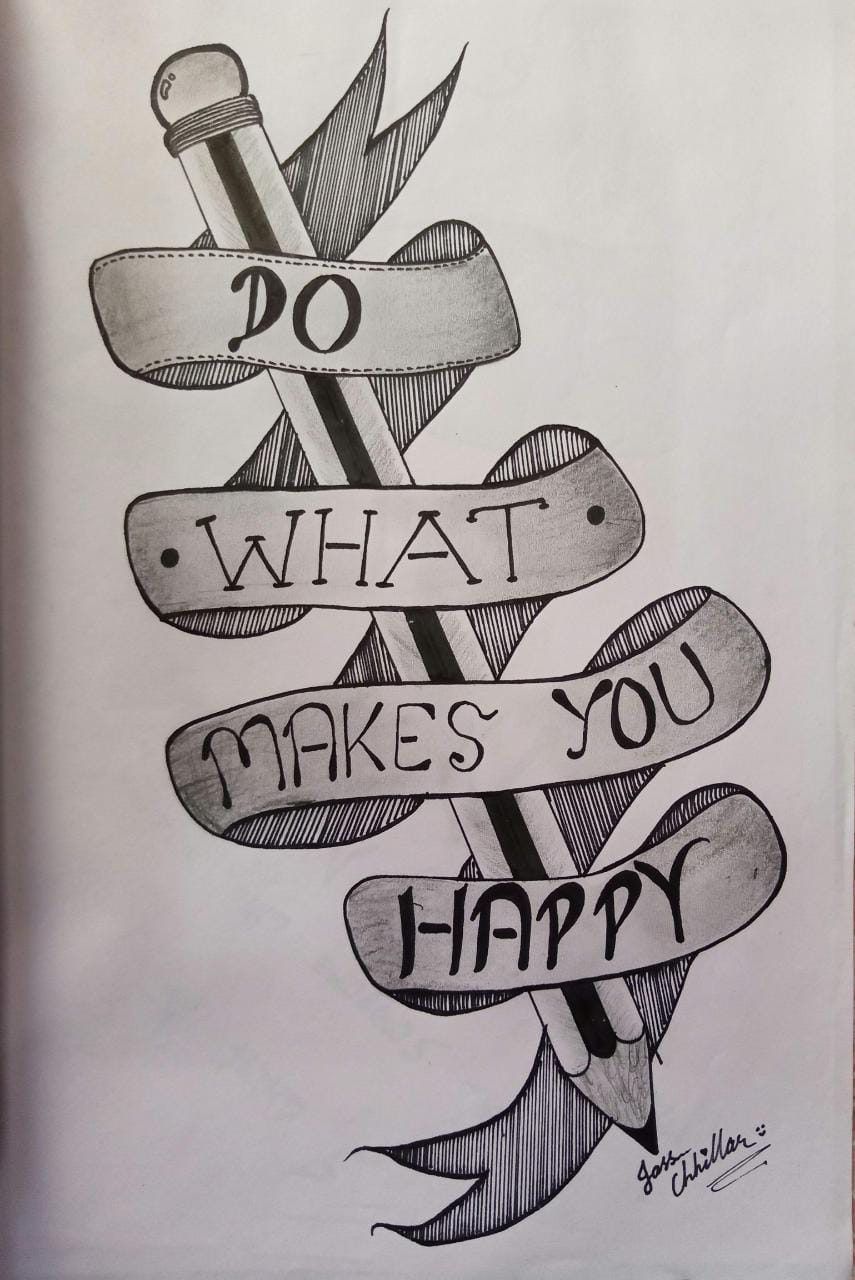 DO
WHAT
MAKES YOU
HAPPY
Chhillar